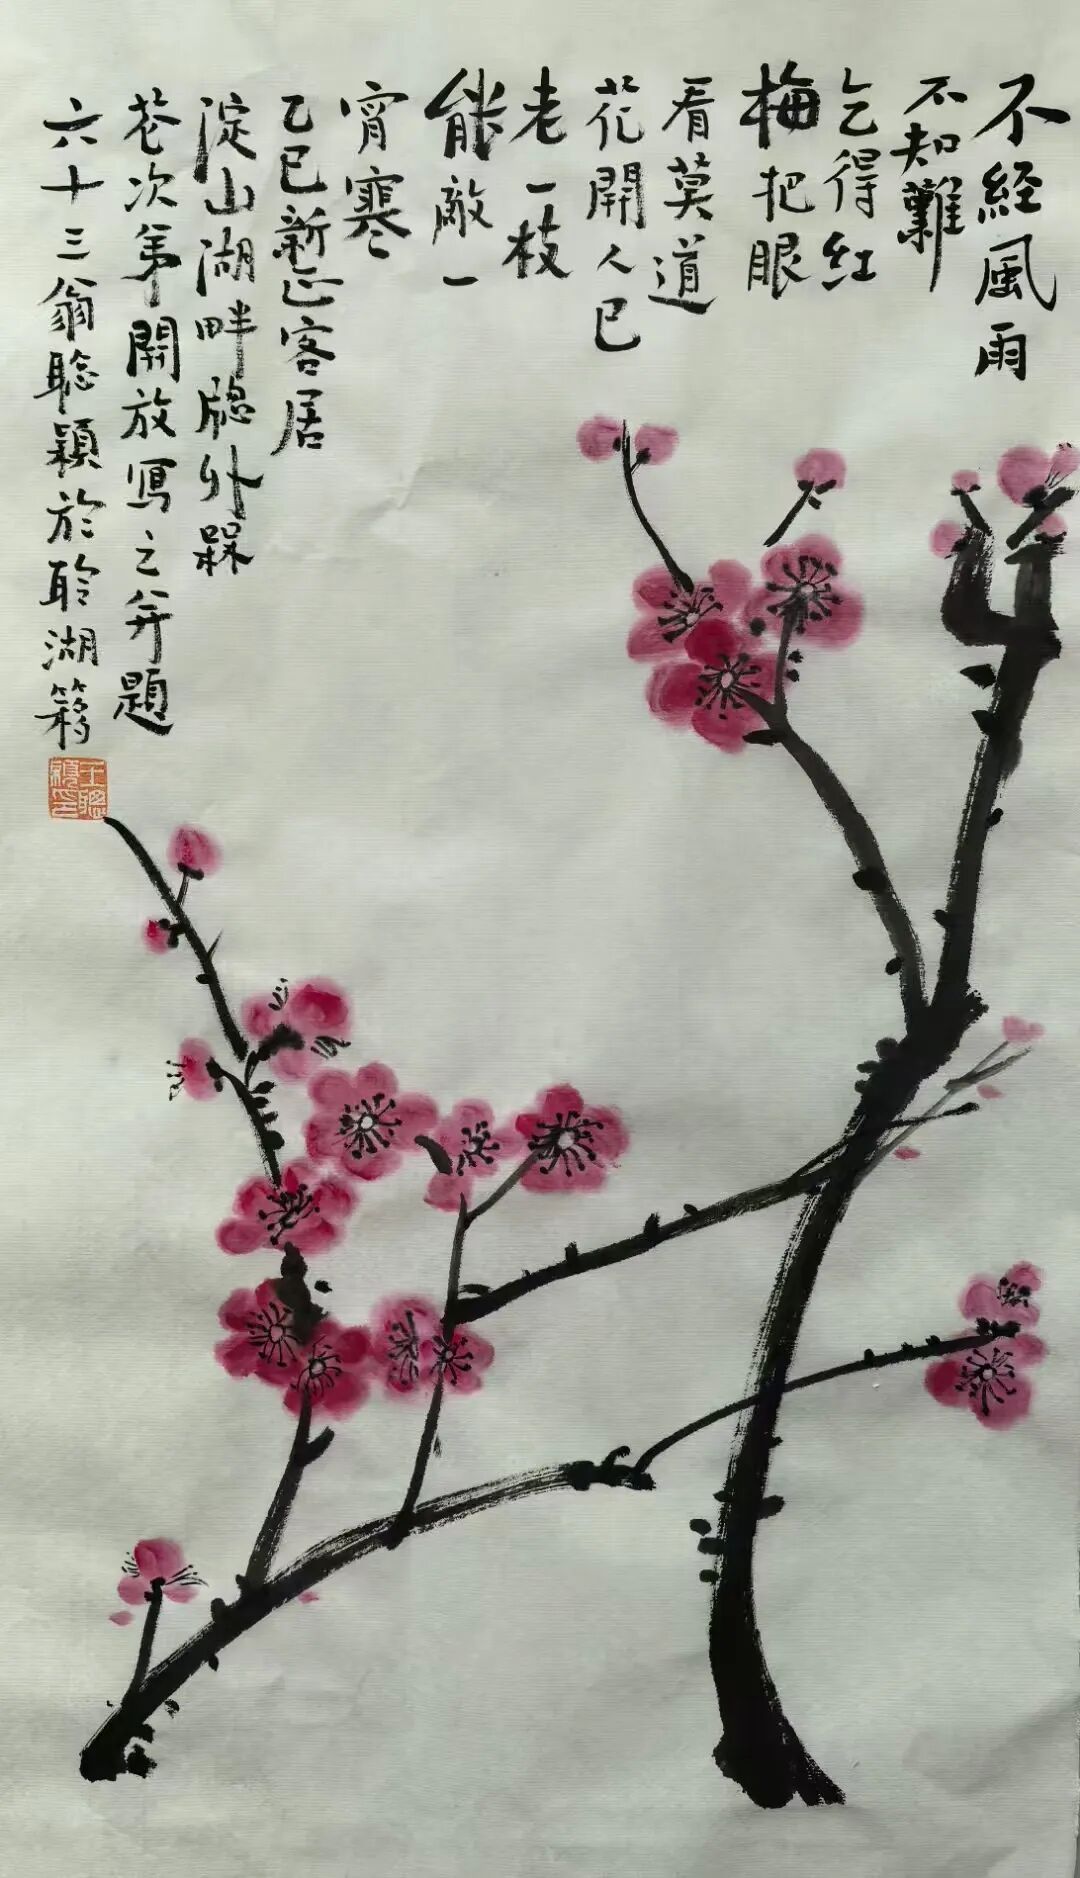 不經風雨
不知難
乞得红
梅把眼
看莫道
花開人已
老一枝
能敵一
宵寒
乙巳新正客居
淀山湖畔牕外槑
花次第開放寫之并題
六十三翁聡穎於聆湖簃
王聰穎印